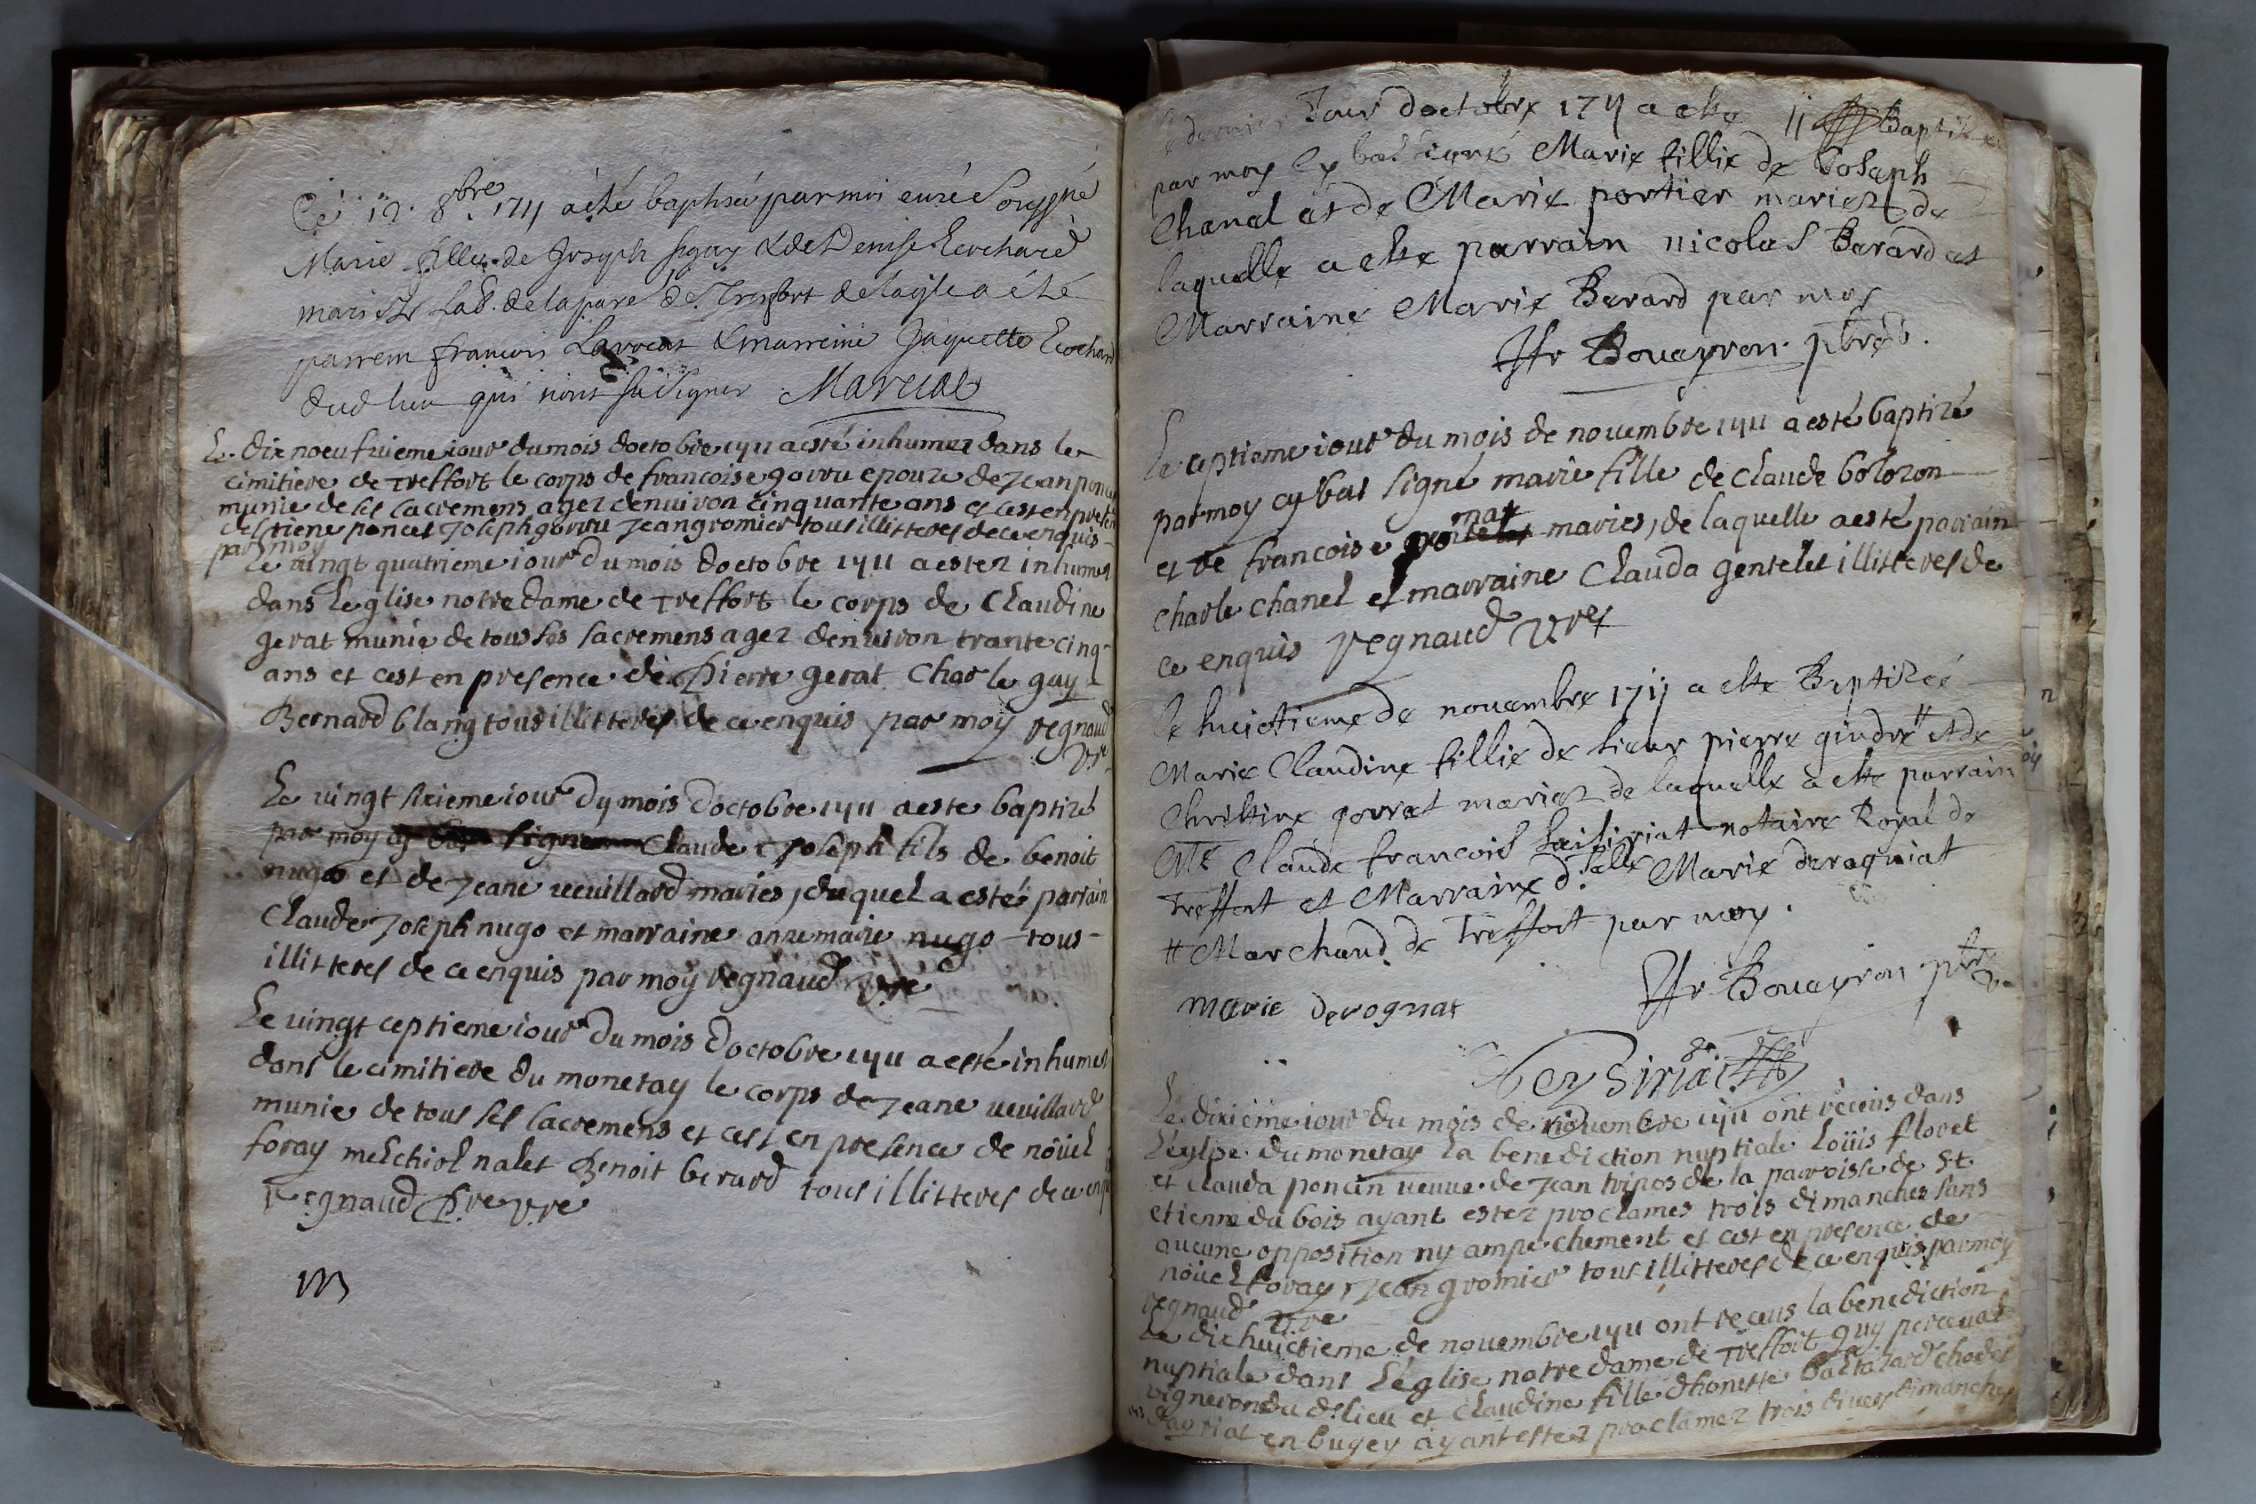 Ce 12. 8bre 1711 a été baptisée par moi curé soussigné
Marie fille de Joseph &de Denise Cochard
mariés
parrein francois Lavocat & marreine Jaquette Cochard
dud lieu qui n'ont sû signer Marcial
Le dix noeufuieme iour du mois doctobre 1711 a esté inhumez dans le
cimitiere de Treffort le corps de francoise gorru epouze de Jean poncet
munie de ses sacremens agez denuiron cinquante ans et cest en presence
destiene poncet Joseph gorru Jean gromier tous illitteres de ce enquis
par moy
Le uingt quatrieme iour du mois doctobre 1711 a estez inhumez
dans Leglise notre dame de Treffort le corps de Claudine
gerat munie de tous ses sacremens agez denuiron trante cinq
ans et cest en presence de pierre gerat Charle guy
Bernard blang tous illitteres de ce enquis par moy regnaud
vre
Le uingt sixieme iour du mois doctobre 1711 a este baptizé
par moy cy bas signe Claude Joseph fils de benoit
nugo et de Jeane ueuillard maries, duquel a esté parrain
Claude Joseph nugo et marraine anne marie nugo tous
illitteres de ce enquis par moy regnaud vre
Le uingt ceptieme iour du mois doctobre 1711 a esté inhumez
dans le cimitiere du monetay le corps de Jeane ueuillard
munie de tous ses sacremens et cest en presence de nöuel
foray melchiol nalet Benoit berard tous illitteres de ce enquis
regnaud pre vre
m
Le dernier Jour doctobre 1711 a este // Baptizee
par moy Cy bas signé Marie fillie de Joseph
Chanel et de Marie portier mariez de
laquelle a este parrain nicolas Berard et
Marraine Marie Berard par moy
Bouayron pbre
Le ceptieme iour du mois de nouembre 1711 a esté baptizé
par moy cy bas signé marie fille de Claude bolozon
mat
et de francoise maries, de laquelle a esté parrain
charle chanel et marraine Clauda gentelet illitteres de
ce enquis regnaud vre
Le huictieme de nouembre 1711 a este Baptizeé
Marie Claudine fillie de sieur pierre gindre # et de
Christine gorrat mariez de laquelle a este parrain
Mre Claude francois notaire Royal de
Treffort et Marraine dselle Marie derognat
# Marchand de Treffort par moy.
Bouayron pbre
marie derognat
Le dixieme iour du mois de nouembre 1711 ont receus dans
Léglise du monetay la benediction nuptiale Loüis floret
et Clauda poncin ueuue de Jean tripos de la parroisse de St
etienne du bois ayant estez proclames trois dimanches sans
aucune opposition ny ampechement et cest en presence de
nöuel foray, Jean gromier tous illitteres de ce enquis par moy
regnaud vre
Le dixhuictieme de nouembre 1711 ont receus la benediction
nuptiale dans Léglise notre dame de Treffort guy perceual
uigneron du d. lieu et Claudine fille dhoneste baltazard chodet
en bugey ayant estez proclamez trois diuers dimanches